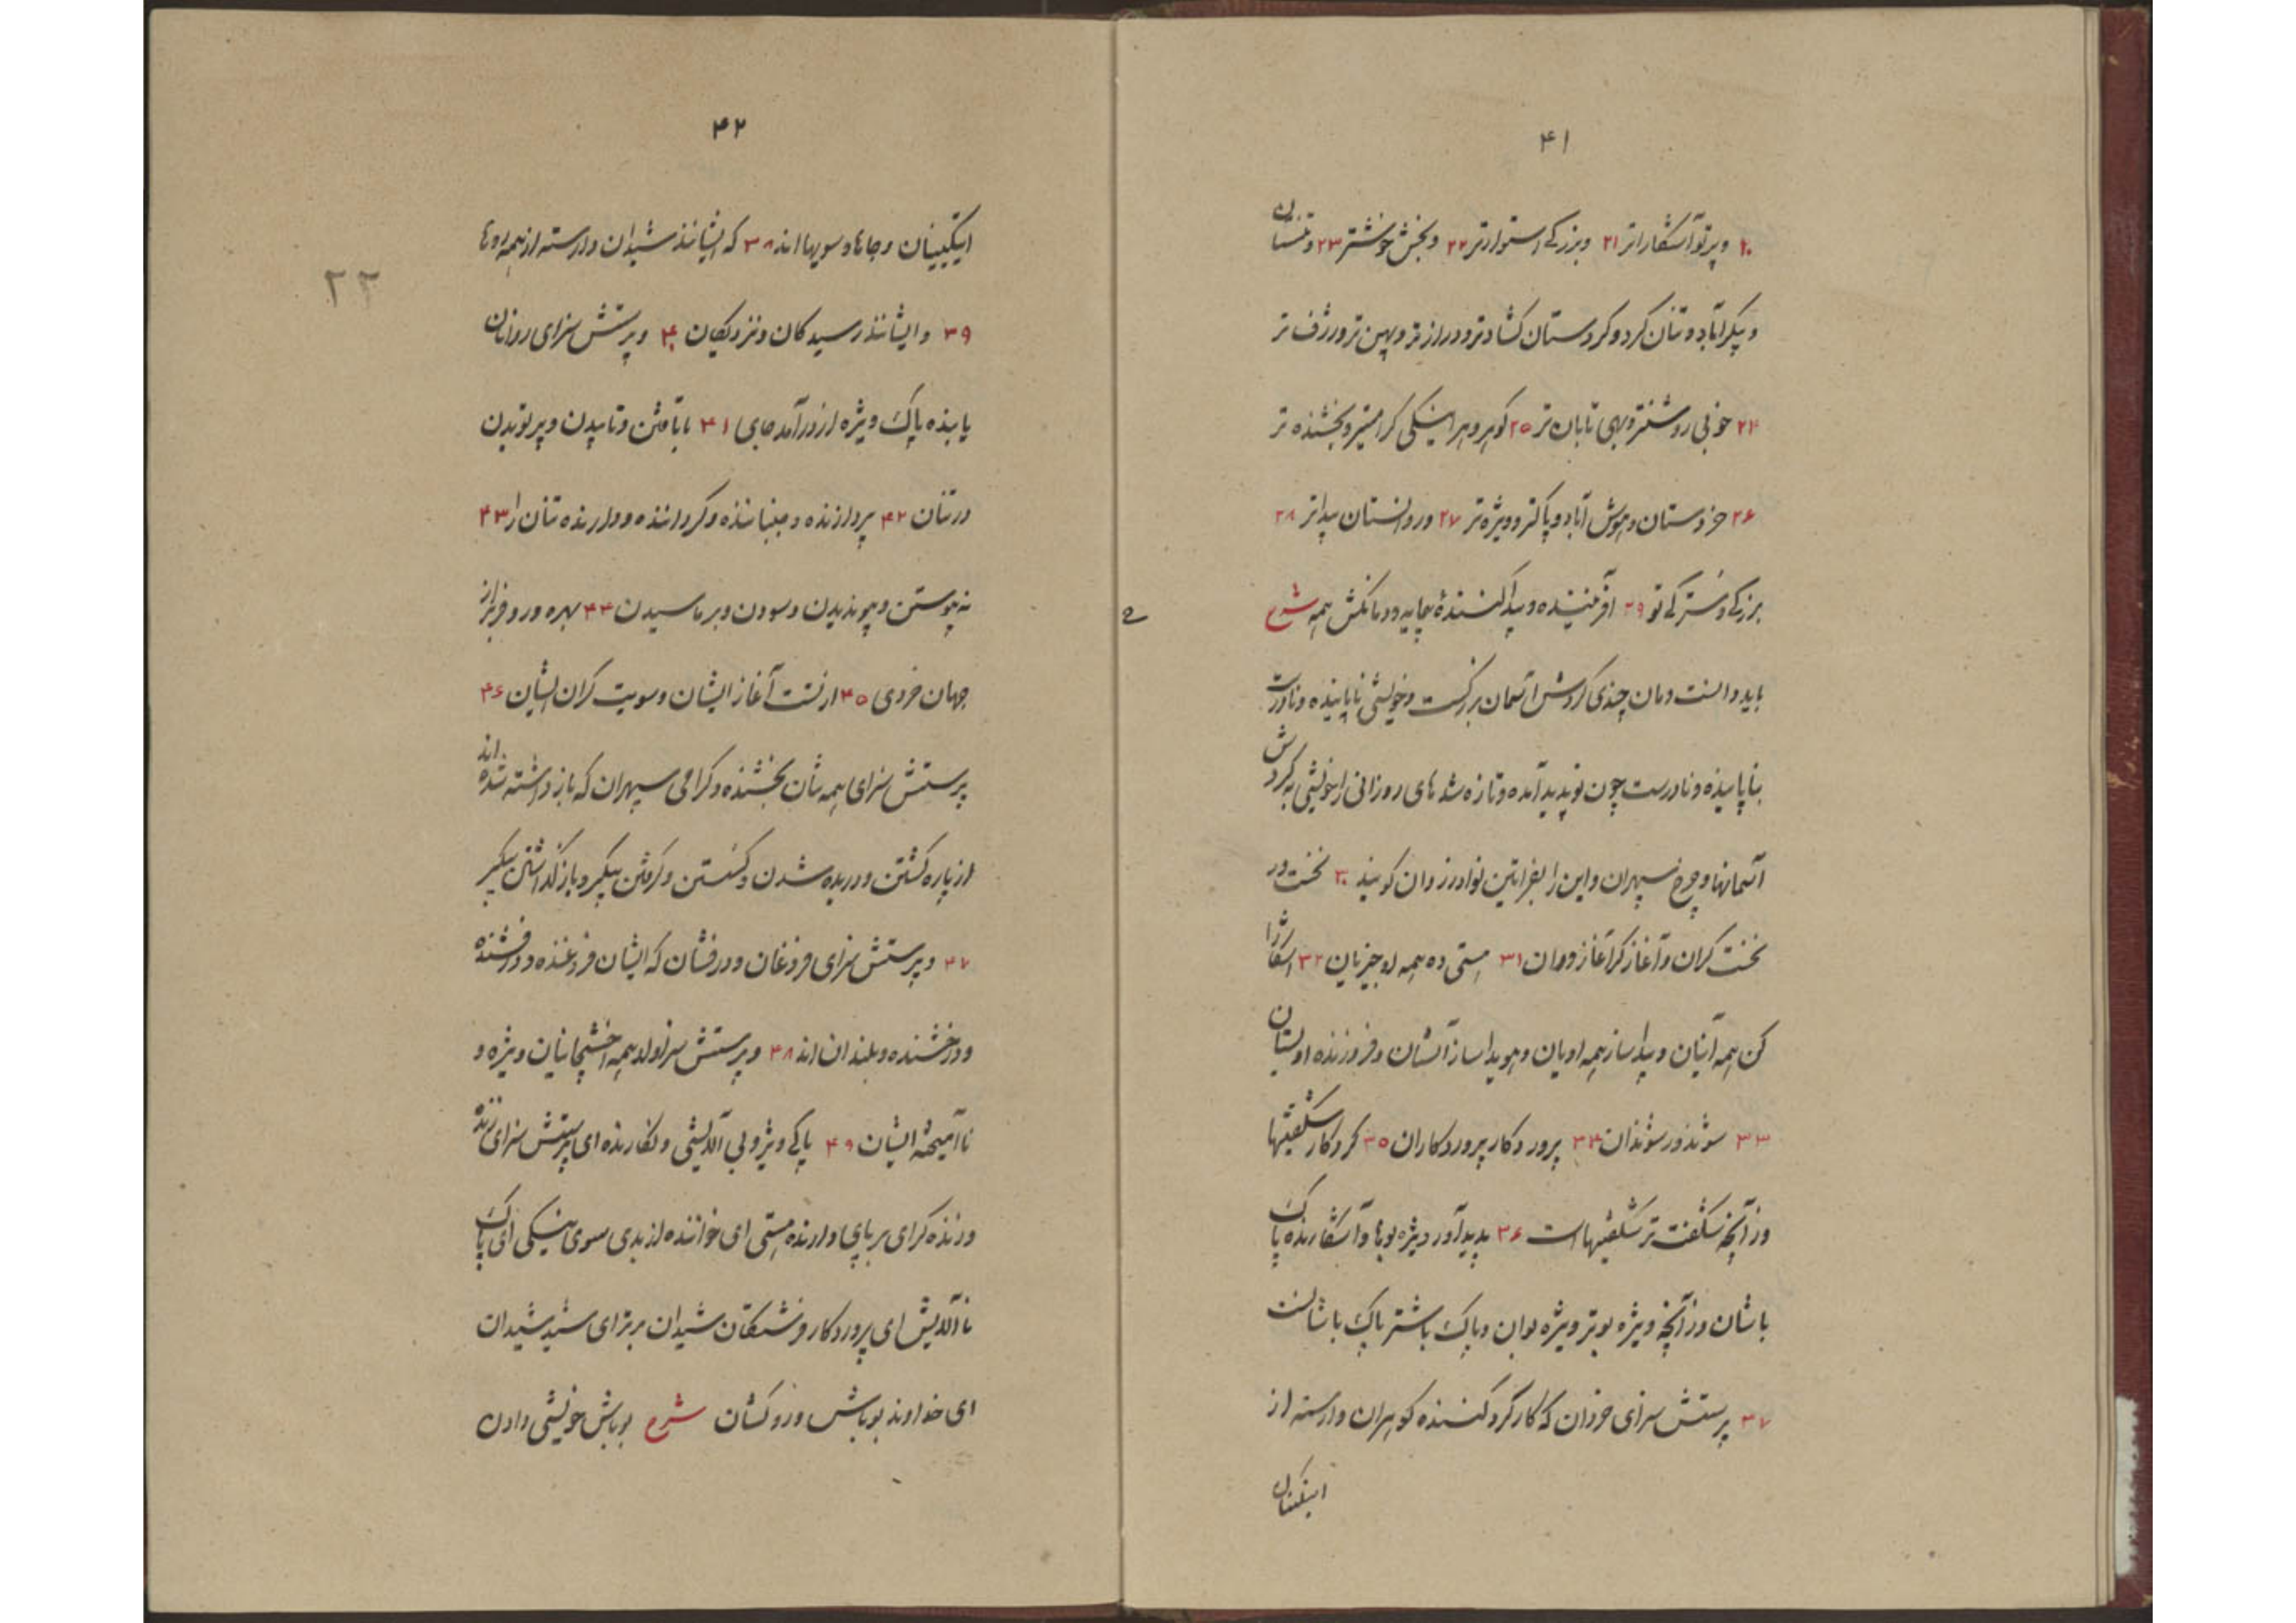 ۴۱
۲۰ و پرتو آشکاراتر ۲۱ و بزرگی استوارتر ۲۲ و بخش خوشتر ۲۳ و تنستان
و پیکرآباد و تنان کرد و کردستان کشادتر و درازتر و پهن تر و ژرف تر
۲۴ خوبی روشنتر و بهی تابان تر ۲۵ گوهر و هر اینکی کرامیتر و بخشنده تر
۲۶ خردستان و هوش آباد و پاکتر و ویژه تر ۲۷ و روانستان پیداتر ۲۸
بزرگی و سترگی تو ۲۹ آفریننده و پیدا کنندهٔ مایه و مانکش همه شرح
باید دانست زمان چندی گردش آسمان بزرگست و خویشی ناپاینده و نادرست
بناپاینده و نادرست چون نو پدید آمده و تازه شد های روزانی را خویشی به گردش
آسمانها و چرخ سپهران و این را بفراتین نوادر زروان گویند ۳۰ نخست ور
نخست کران و آغاز کر آغاز وران ۳۱ هستی ده همه او چیزیان ۳۲ آشکارا
کن همه آینان و پیدا ساز همه اویان و هویدا ساز آنشان و فروزنده اویستان
۳۳ سوند ور سوندان ۳۴ پروردکار پروردکاران ۳۵ کردکار شکفتیها
وز آنچه شکفت تر شکفتیهاست ۳۶ پدید آور ویژه بوها و آشکارنده پاک
باشان وز آنچه ویژه بوتر ویژه بوان و پاک باشتر پاک باشانست
۳۷ پرستش سزای خردان که کارکرد کننده کوهران وارسته از
اینکینان
۴۲
اینکینان و جاها و سویها اند ۳۸ که ایشانند شیدان وارسته از همه روها
۳۹ و ایشانند رسیدکان و نزدیکان ۴۰ و پرستش سزای روانان
پاینده پاک ویژه از درآمد جای ۴۱ با تافتن و تابیدن و پرتویدن
در تنان ۴۲ پردازنده و جنباننده و کرداننده و دارنده تنان را ۴۳
نه پیوستن و پیوندیدن و سودن و برماسیدن ۴۴ بهره ور و فریز از
جهان خردی ۴۵ از تست آغاز ایشان و سویت کران ایشان ۴۶
پرستش سزای همه شان بخشنده و کرامی سپهران که بازداشته شده اند
از پاره کشتن و دریده شدن و کسستن و کرفتن پیکر و بازکذاشتن پیکر
۴۷ و پرستش سزای فروغان و درفشان که ایشان فروغنده و درفشنده
و درخشنده و بلندان اند ۴۸ و پرستش سزاوار همه اخشیجانیان ویژه و
ناآمیخته ایشان ۴۹ پاکی ویژه و بی آلایشی و نکارنده ای پرستش سزای زنده
و زنده کرای برپای دارنده هستی ای خواننده از بدی سوی نیکی ای پاک
ناآلایش ای پروردکار فرشتکان شیدان برتر ای شید شیدان
ای خداوند بوباش و زروکشان شرح بوباش خویشی دادن
۲۲